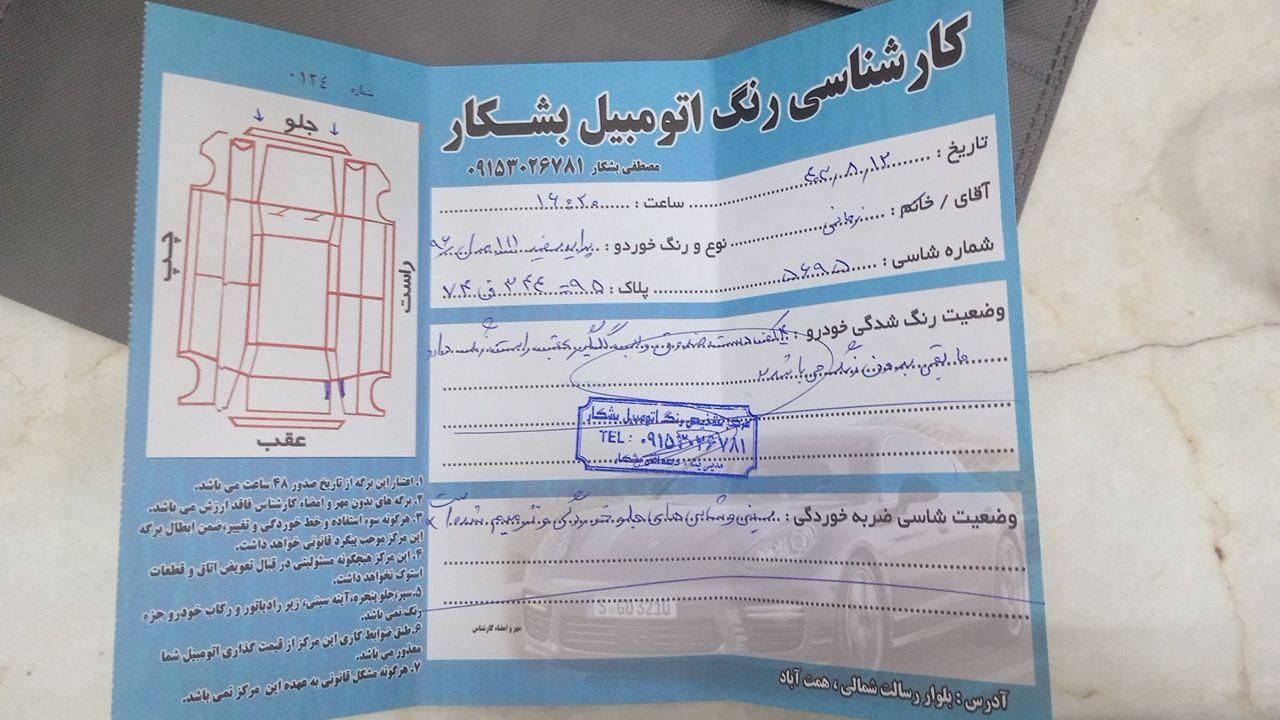 کارشناسی رنگ اتومبیل بشکار
مصطفی بشکار ۰۹۱۵۳۰۲۶۷۸۱
تاریخ : ۸،۱۲
ساعت : ۱۶:۲۰
آقای / خانم :
نوع و رنگ خودرو : پراید سفید ۱۱۱ مدل ۹۶
شماره شاسی : ۵۶۹۵
پلاک : ۹۵ ۲۴۴ ق ۷۴
وضعیت رنگ شدگی خودرو : کف صندوق و لب گلگیر عقب راست رنگ دارد
مابقی بدون رنگ می باشد
مرکز تشخیص رنگ اتومبیل بشکار
TEL: ۰۹۱۵۳۰۲۶۷۸۱
وضعیت شاسی ضربه خوردگی : سینی و شاسی های جلو خوردگی و ترمیم شده است
S·GO 3210
مهر و امضاء کارشناس
آدرس : بلوار رسالت شمالی ، همت آباد
شماره ۰۱۲٤
جلو
چپ
راست
عقب
۱. اعتبار این برگه از تاریخ صدور ۴۸ ساعت می باشد.
۲. برگه های بدون مهر و امضاء کارشناس فاقد ارزش می باشد.
۳. هرگونه سوء استفاده و خط خوردگی و تغییر، ضمن ابطال برگه
این مرکز موجب پیگرد قانونی خواهد داشت.
۴. این مرکز هیچگونه مسئولیتی در قبال تعویض اتاق و قطعات
استوک نخواهد داشت.
۵. سپر، جلو پنجره، آینه، سینی، زیر رادیاتور و رکاب خودرو جزء
رنگ نمی باشد.
۶. طبق ضوابط کاری این مرکز از قیمت گذاری اتومبیل شما
معذور می باشد.
۷. هرگونه مشکل قانونی به عهده این مرکز نمی باشد.